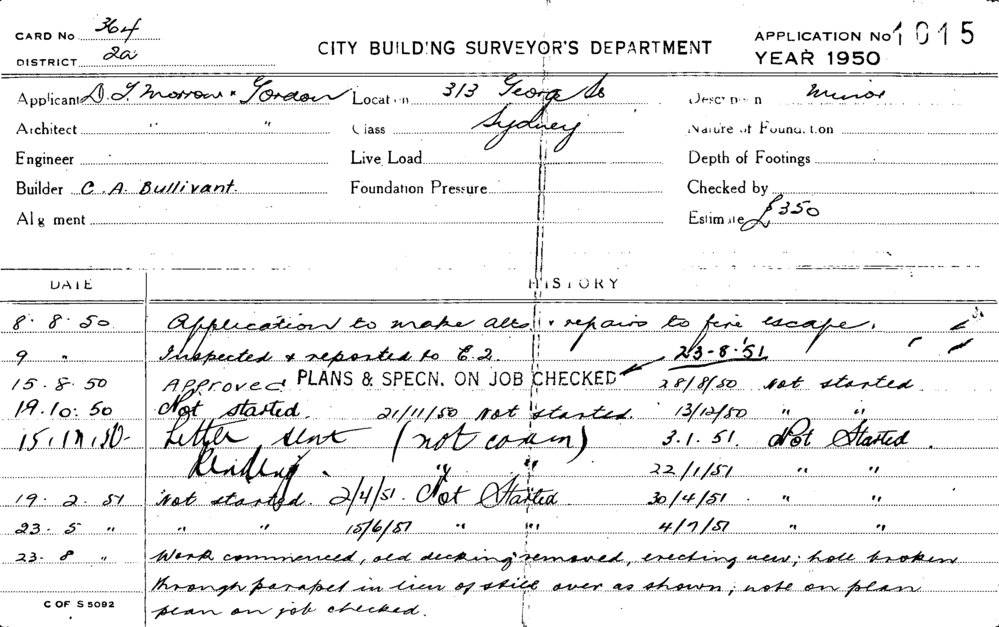 CARD No 364
DISTRICT 2a
CITY BUILDING SURVEYOR'S DEPARTMENT
APPLICATION No 1015
YEAR 1950
Applicant D. T. Morrow & Gordon Location 313 George St Description Minor
Architect " " Class Sydney Nature of Foundation
Engineer Live Load Depth of Footings
Builder C. A. Bullivant. Foundation Pressure Checked by
Alignment Estimate £350
DATE HISTORY
8. 8. 50 Application to make alts. & repairs to fire escape.
9 " Inspected & reported to E.2. 23-8-51
15. 8. 50 Approved PLANS & SPECN. ON JOB CHECKED 28/8/50 Not started.
19. 10. 50 Not started. 21/11/50 Not started. 13/12/50 " "
Letter sent (not comm) 3.1.51. Not Started.
Pending. " " 22/1/51 " "
19. 2. 51 Not started. 2/4/51. Not Started 30/4/51. " "
23. 5 " " " 15/6/51 " " 4/7/51 " "
23. 8 " Work commenced, old decking removed, erecting new; hole broken
through parapet in lieu of still over as shown; note on plan
plan on job checked.
C OF S 5092